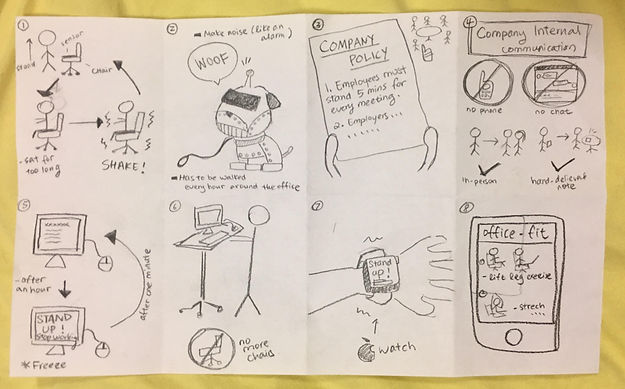 1
stand
sensor
CHAIR
- sat for
too long
SHAKE!
2
Make noise (like an
alarm)
WOOF
Has to be walked
every hour around the office
3
COMPANY
POLICY
1. Employers must
stand 5 mins for
every meeting.
2. Employers...
4
Company Internal
communication
no phone
no chat
in-person
hand-delivert
note
5
- after
an hour
after one minute
STAND
UP!
Stop working
* Freeze
6
no
more
chairs
7
Stand
up!
watch
8
office - fit
- lift leg exercise
- strech